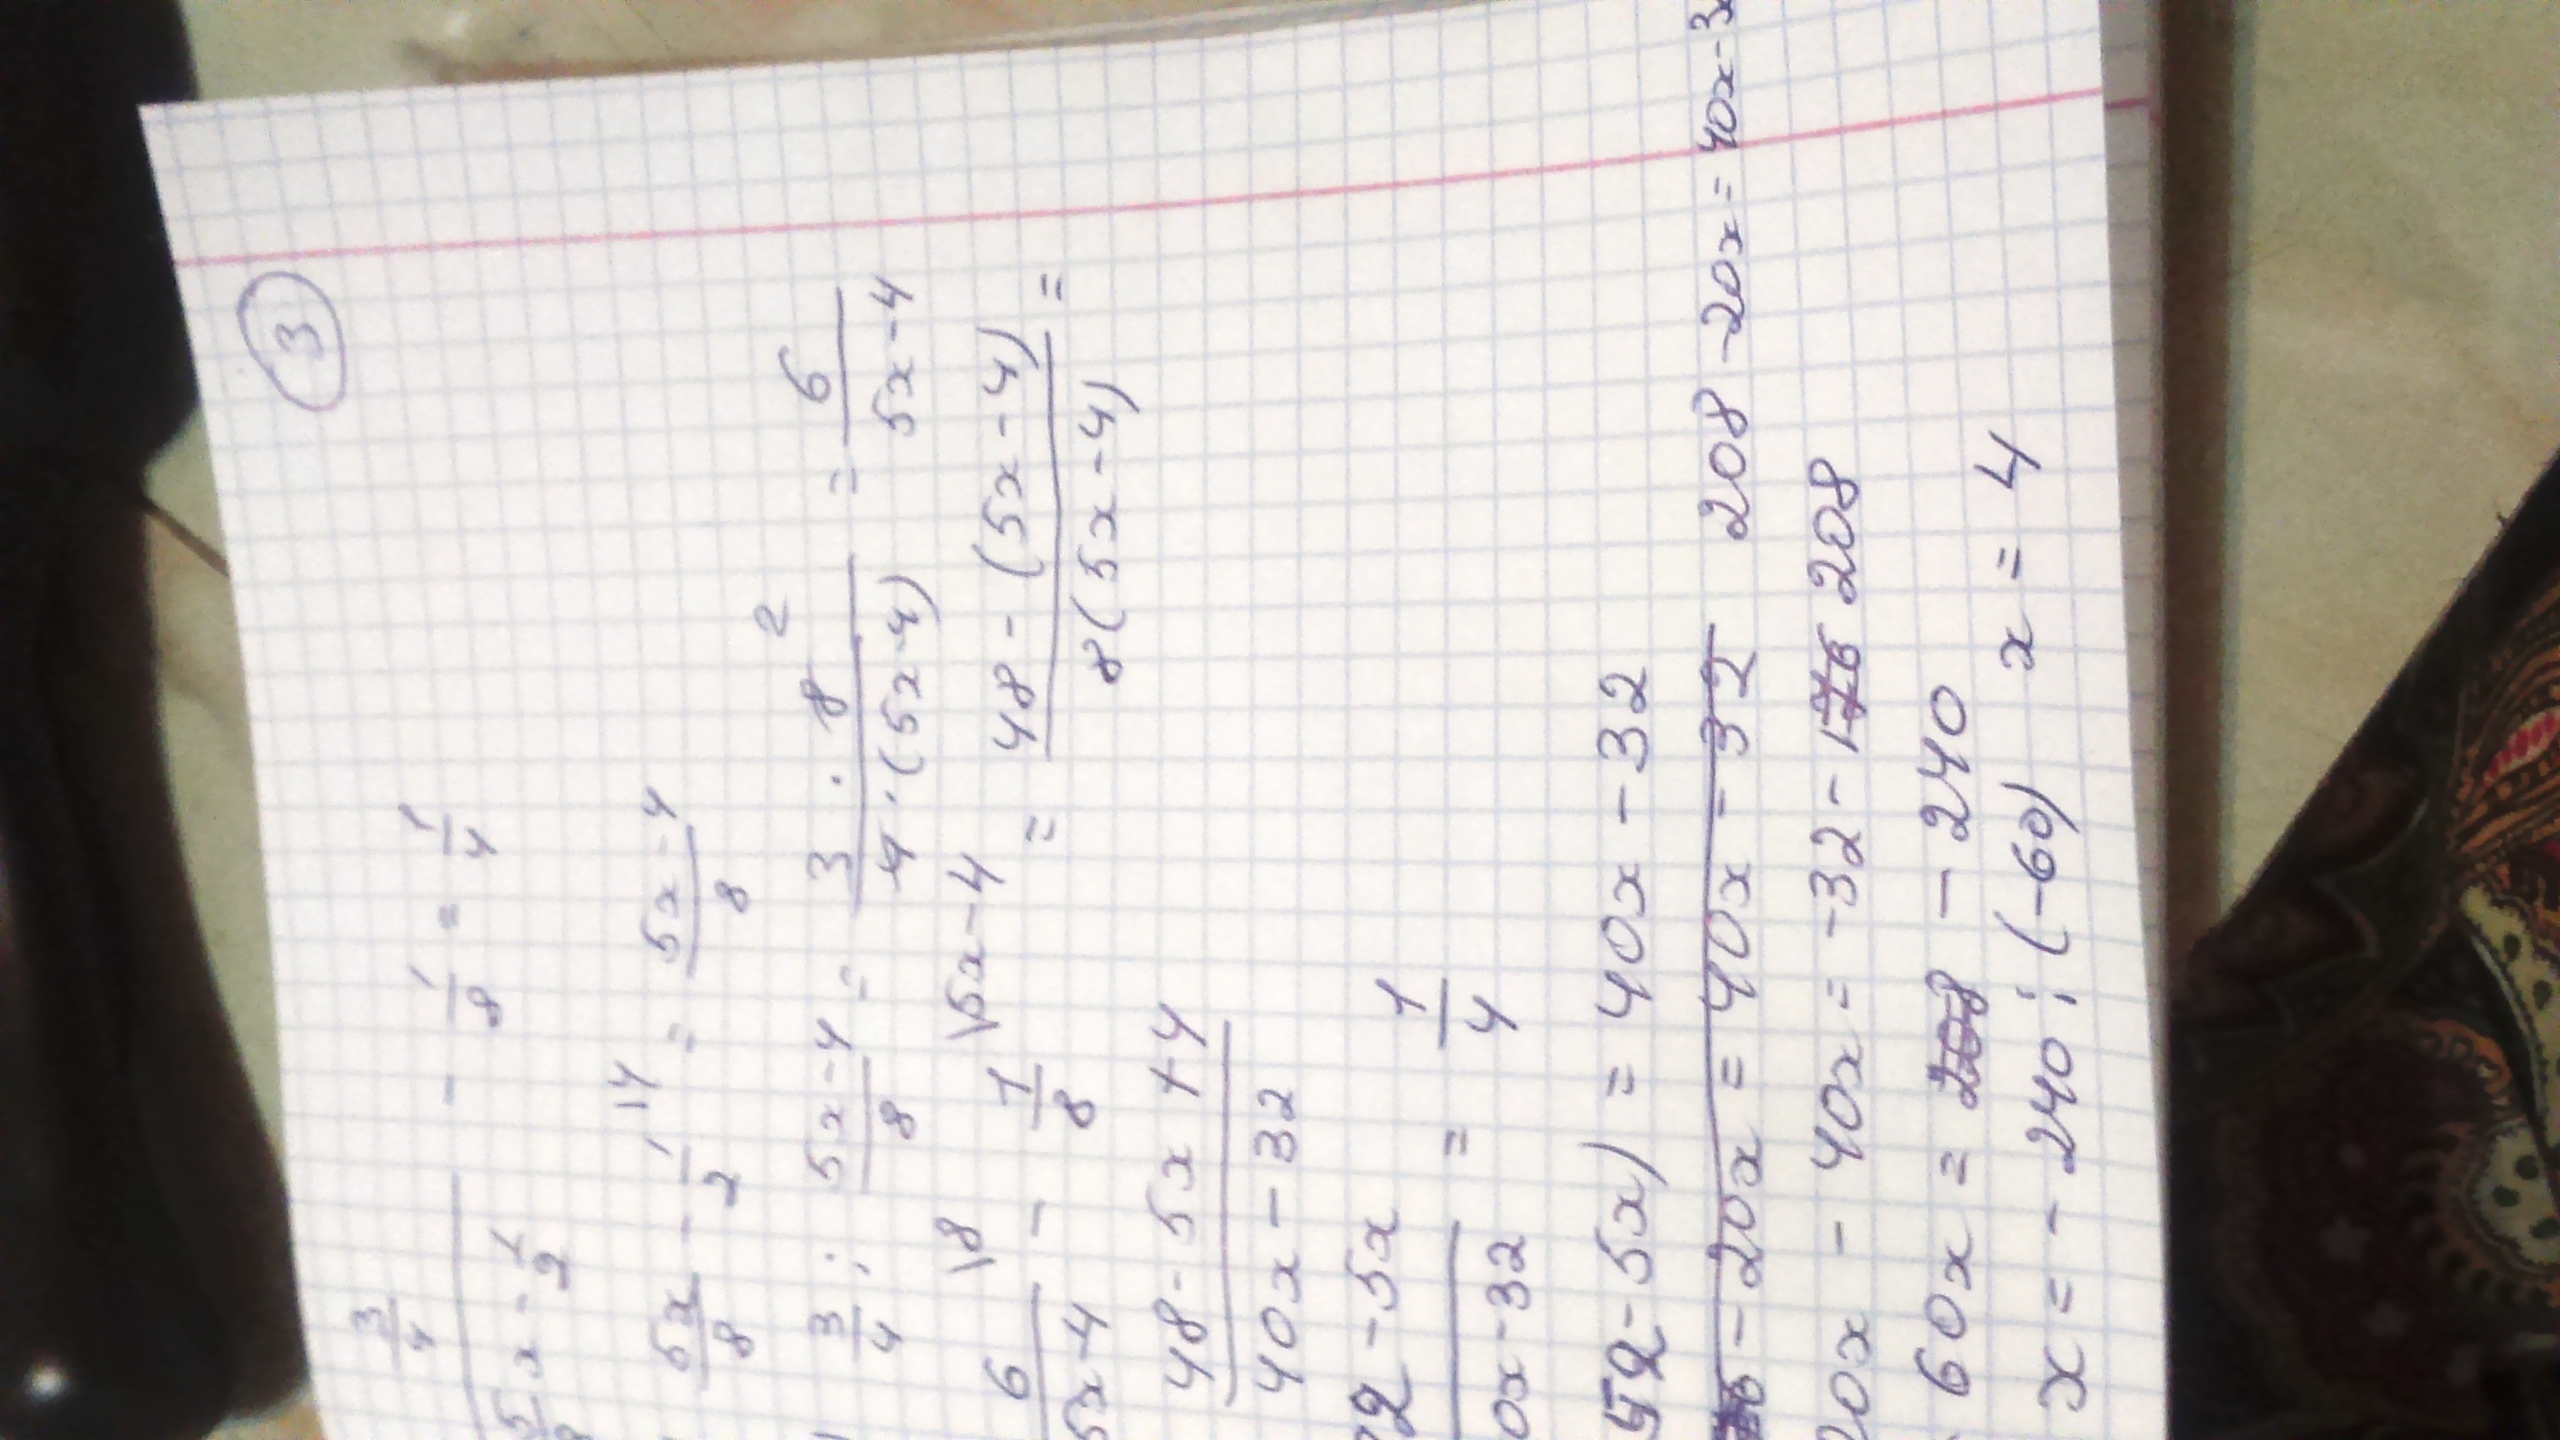 ③
3/4
——— - 1/8 = 1/4
5/8 x - 1/2
5x/8 - 1/2 \4 = 5x-4/8
3/4 : 5x-4/8 = 3 · 8 2/4 · (5x-4) = 6/5x-4
6/5x-4 \8 - 1/8 \5x-4 = 48-(5x-4)/8(5x-4) =
48-5x+4/40x-32
2-5x/0x-32 = 1/4
52-5x) = 40x-32
-20x = 40x-32 208-20x = 40x-3
20x - 40x = -32-176 208
60x = 208 -240
x = -240 : (-60) x = 4